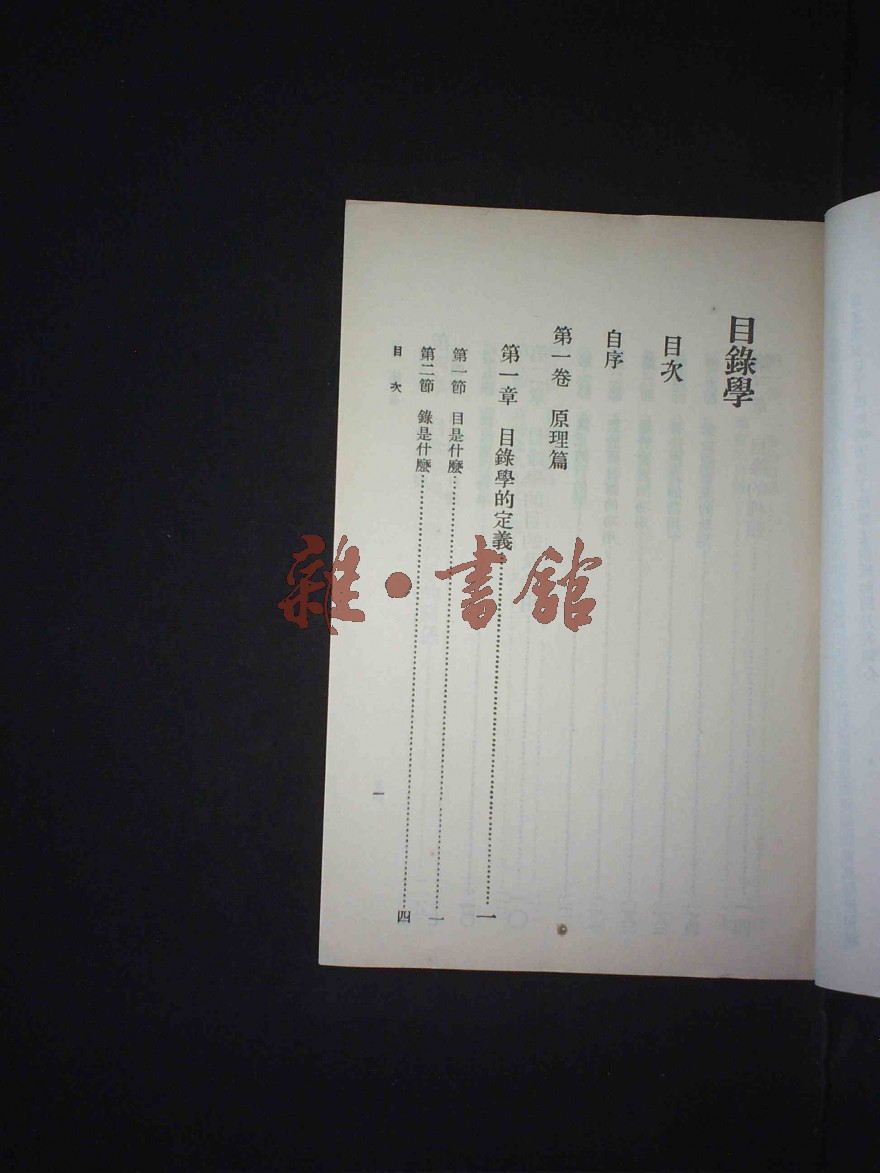 目錄學
目次
自序
第一卷 原理篇
第一章 目錄學的定義……一
第一節 目是什麼……一
第二節 錄是什麼……四
目次
一
雜·書館